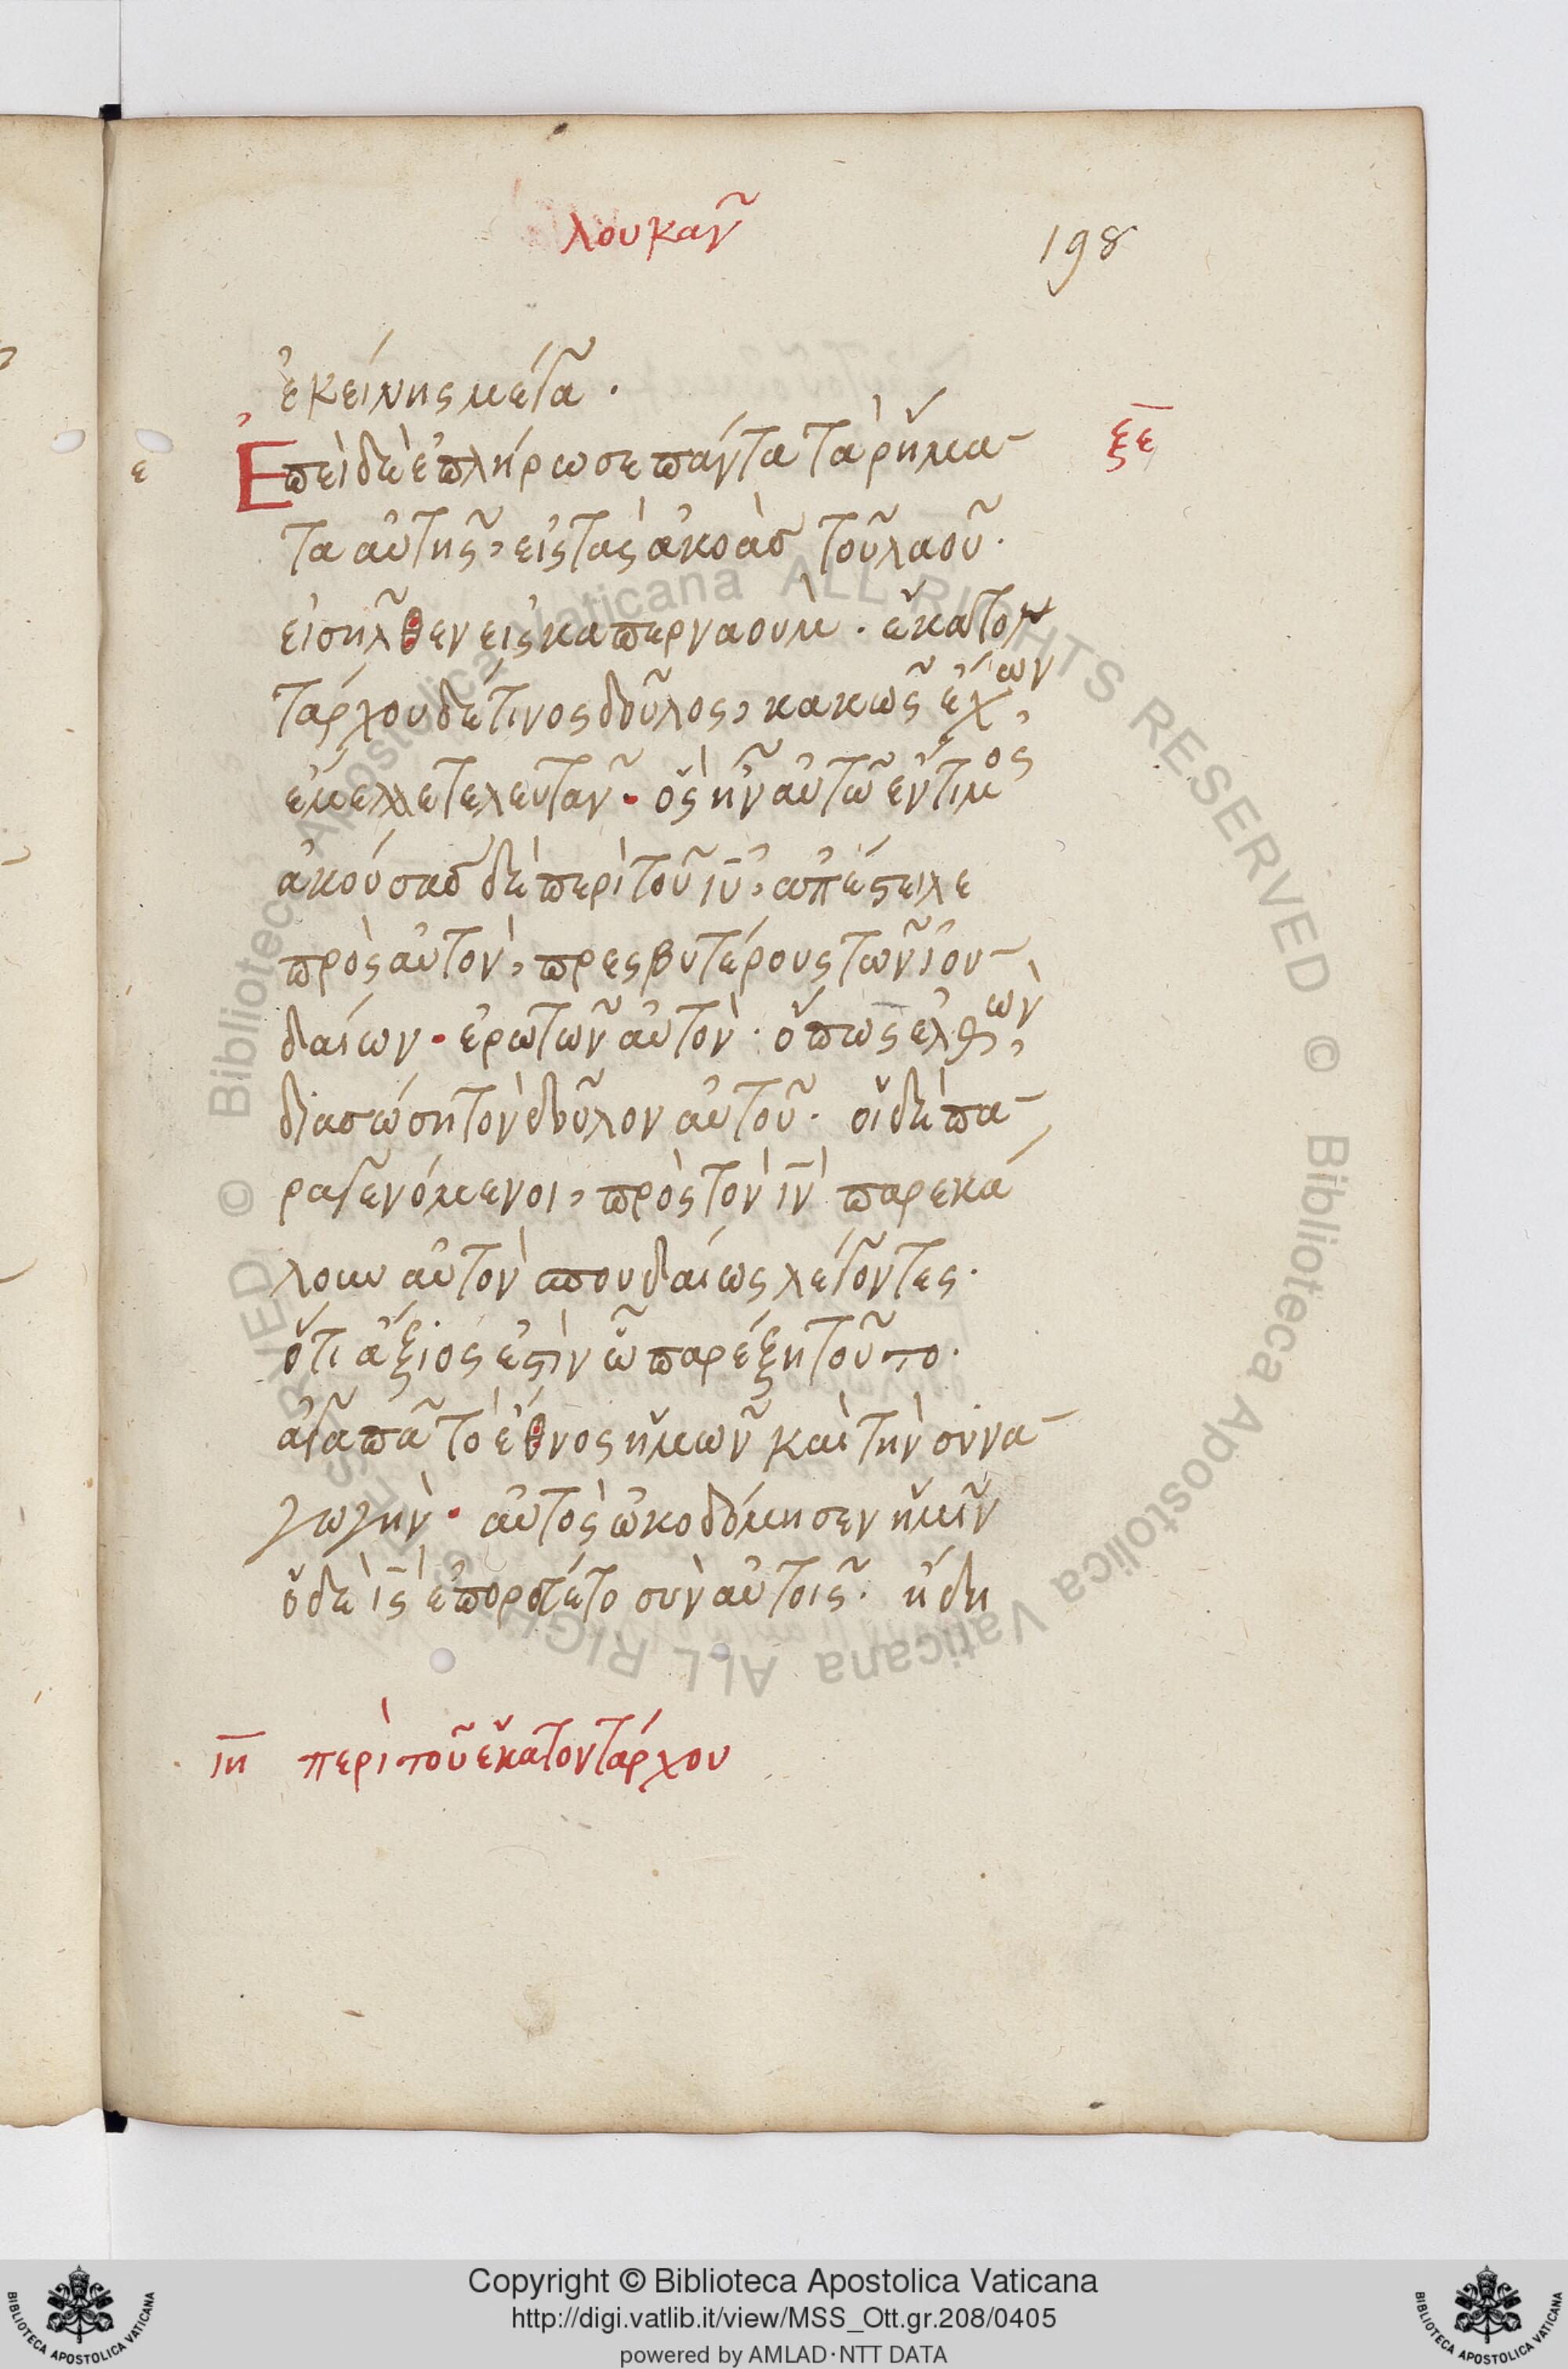 λουκαν̃
198
ἐκείνης μέγα.
ξε
ε
Ἐπειδὴ ἐπλήρωσε πάντα τὰ ῥήμα-
τα αὐτῆς, εἰς τὰς ἀκοὰς τοῦ λαοῦ.
εἰσῆλθεν εἰς καπερναοὺμ. ἑκατον
τάρχου δέ τινος δοῦλος, κακῶς ἔχων,
ἔμελλε τελευτᾶν. ὃς ἦν αὐτῶ ἔντιμος
ἀκούσας δὲ περὶ τοῦ ιυ, ἀπέστειλε
πρὸς αὐτὸν, πρεσβυτέρους τῶν ἰου-
δαίων. ἐρωτῶν αὐτὸν. ὅπως ἐλθὼν,
διασώση τὸν δοῦλον αὐτοῦ. οἱ δὲ πα-
ραγενόμενοι, πρὸς τὸν ιν παρεκά
λουν αὐτὸν σπουδαίως λέγοντες.
ὅτι ἄξιός ἐστὶν ὧ παρέξη τοῦτο.
ἀγαπᾶ τὸ ἔθνος ἡμῶν καὶ τὴν συνα-
γωγὴν. αὐτὸς ὠκοδόμησεν ἡμῖν
ὁ δὲ ις ἐπορεύετο σὺν αὐτοῖς. ἤδη
ιη περὶ τοῦ ἑκατοντάρχου
Copyright © Biblioteca Apostolica Vaticana
http://digi.vatlib.it/view/MSS_Ott.gr.208/0405
powered by AMLAD·NTT DATA